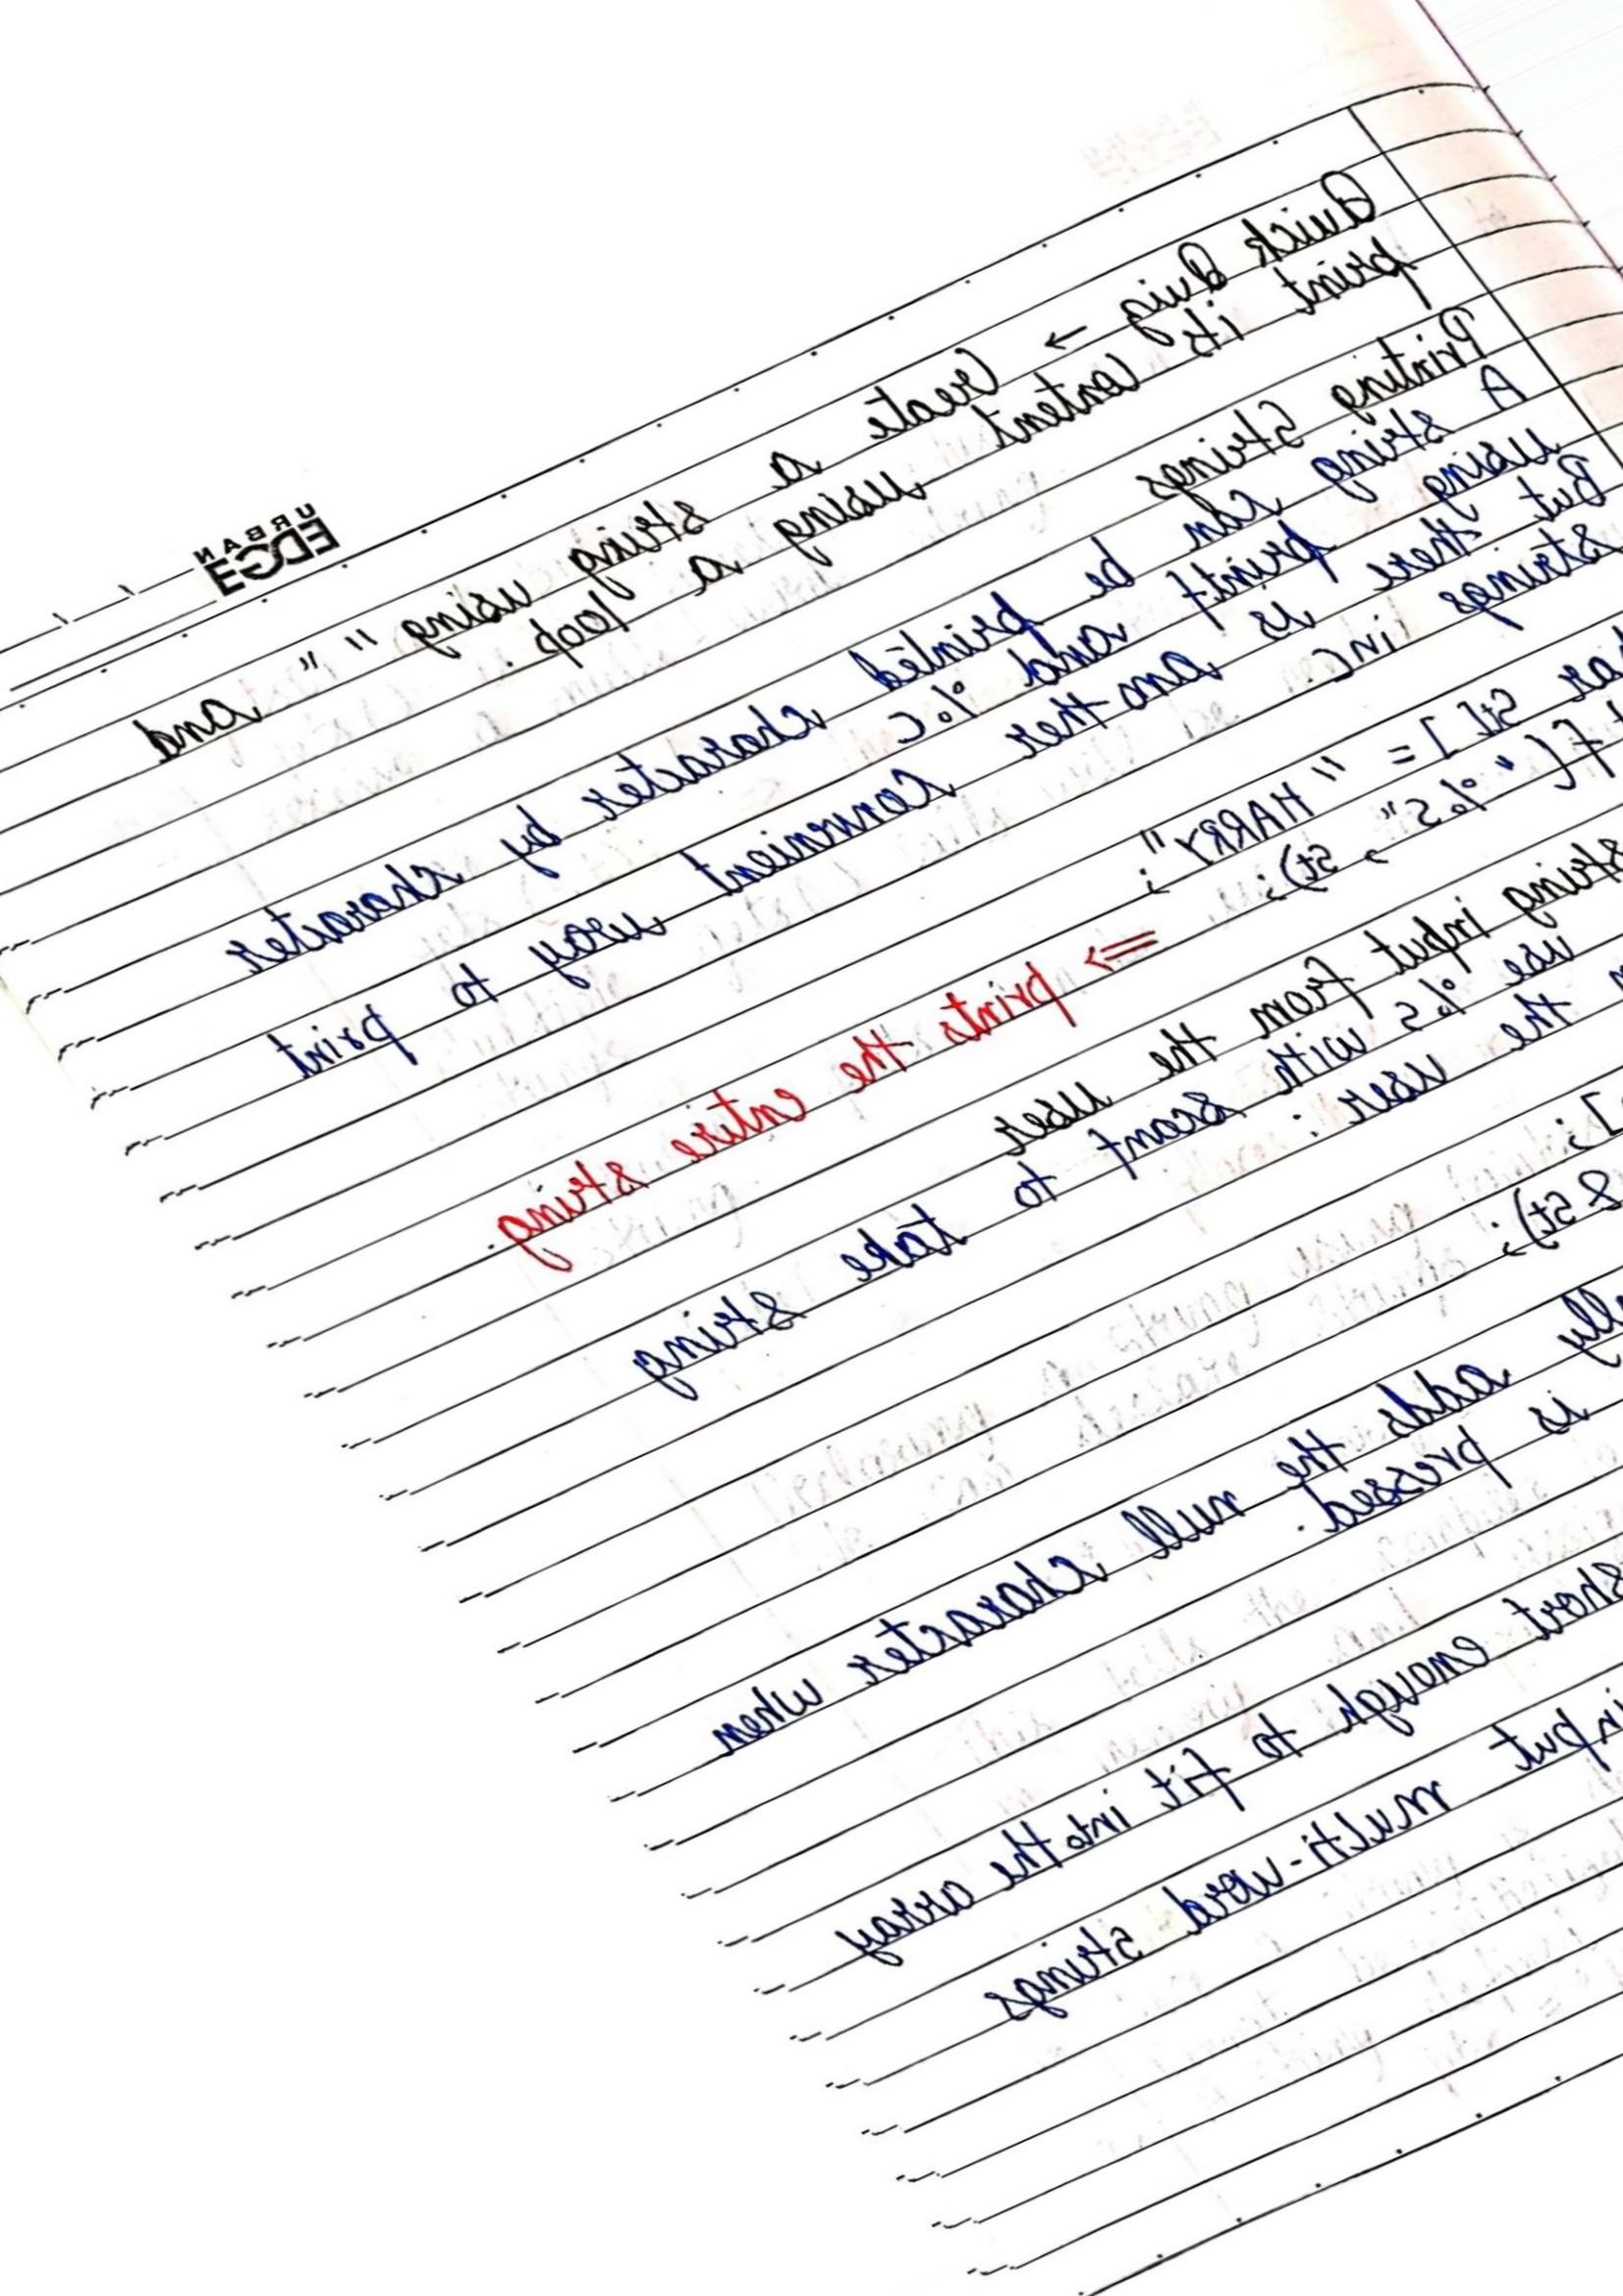 URBAN
EDGE
Quick Quiz → Create a string using " " and
print its content using a loop.
Printing Strings
A string can be printed character by character
using printf and %c
But there is another convenient way to print
strings in c.
ar St[ ] = "HARRY";
f( "%s" , St); => prints the entire string.
string input from the user
use %s with scanf to take string
the user :
];
&st);
lly adds the null character when
is pressed.
short enough to fit into the array
input multi-word strings